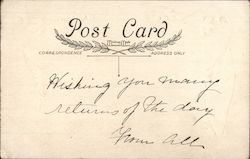 Post Card
CORRESPONDENCE ADDRESS ONLY
Wishing you many
returns of the day
From all